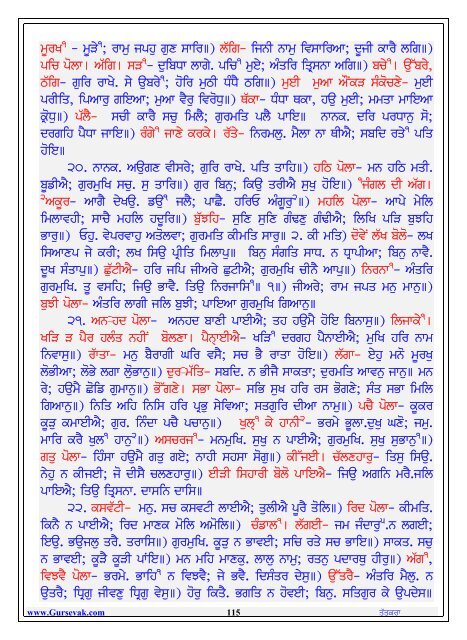 ਮੂਰਖੀ - ਮੂੜੇ; ਰਾਮੁ ਜਪਹੁ ਗੁਣ ਸਾਰਿ॥) ਲੱਗਿ- ਜਿਨੀ ਨਾਮੁ ਵਿਸਾਰਿਆ; ਦੂਜੀ ਕਾਰੈ ਲਗਿ॥)
ਪਚਿ ਪੋਲਾ। ਅੱਗਿ। ਸੜਾਂ- ਦੁਬਿਧਾ ਲਾਗੇ. ਪਚਿ ਮੁਏ; ਅੰਤਰਿ ਤ੍ਰਿਸਨਾ ਅਗਿ॥) ਬਚੇ। ਉੱਬਰੇ,
ਠੱਗਿ- ਗੁਰਿ ਰਾਖੇ. ਸੇ ਉਬਰੇ; ਹੋਰਿ ਮੁਠੀ ਧੰਧੈ ਠਗਿ॥) ਮੁਈ ਮੁਆ ਔਂਕੜ ਸੰਕੋਚਣੇ- ਮੁਈ
ਪਰੀਤਿ, ਪਿਆਰੁ ਗਇਆ; ਮੁਆ ਵੈਰੁ ਵਿਰੋਧੁ॥) ਥੱਕਾ- ਧੰਧਾ ਥਕਾ, ਹਉ ਮੁਈ; ਮਮਤਾ ਮਾਇਆ
ਕ੍ਰੋਧੁ॥) ਪੱਲੈ- ਸਚੀ ਕਾਰੈ ਸਚੁ ਮਿਲੈ; ਗੁਰਮਤਿ ਪਲੈ ਪਾਇ॥ ਨਾਨਕ. ਦਰਿ ਪਰਧਾਨੁ ਸੋ;
ਦਰਗਹਿ ਪੈਧਾ ਜਾਇ॥) ਰੰਗੇ ਜਾਣੇ ਕਰਕੇ। ਰੱਤੇ- ਨਿਰਮਲੁ. ਮੈਲਾ ਨਾ ਥੀਐ; ਸਬਦਿ ਰਤੇ ਪਤਿ
ਹੋਇ॥
੨੦. ਨਾਨਕ. ਅਉਗਣ ਵੀਸਰੇ; ਗੁਰਿ ਰਾਖੇ. ਪਤਿ ਤਾਹਿ॥) ਹਠਿ ਪੋਲਾ- ਮਨ ਹਠਿ ਮਤੀ.
ਬੂਡੀਐ; ਗੁਰਮੁਖਿ ਸਚੁ. ਸੁ ਤਾਰਿ॥) ਗੁਰ ਬਿਨੁ; ਕਿਉ ਤਰੀਐ ਸੁਖੁ ਹੋਇ॥) ਜੰਗਲ ਦੀ ਅੱਗ।
ਅਕੂਰ- ਆਗੈ ਦੇਖਉ. ਡਉ ਜਲੈ; ਪਾਛੈ. ਹਰਿਓ ਅੰਗੂਰੁ॥) ਮਹਲਿ ਪੋਲਾ- ਆਪੇ ਮੇਲਿ
ਮਿਲਾਵਹੀ; ਸਾਚੈ ਮਹਲਿ ਹਦੂਰਿ॥) ਬੁੱਝਹਿ- ਸੁਣਿ ਸੁਣਿ ਗੰਢਣੁ ਗੰਢੀਐ; ਲਿਖਿ ਪੜਿ ਬੁਝਹਿ
ਭਾਰੁ॥) ਓਹੁ. ਵੇਪਰਵਾਹੁ ਅਤੋਲਵਾ; ਗੁਰਮਤਿ ਕੀਮਤਿ ਸਾਰੁ॥ ੨. ਕੀ ਮਤਿ) ਦੋਵੇਂ ਲੱਖ ਬੋਲੋ- ਲਖ
ਸਿਆਣਪ ਜੇ ਕਰੀ; ਲਖ ਸਿਉ ਪ੍ਰੀਤਿ ਮਿਲਾਪੁ॥ ਬਿਨੁ ਸੰਗਤਿ ਸਾਧ. ਨ ਧ੍ਰਾਪੀਆ; ਬਿਨੁ ਨਾਵੈ.
ਦੂਖ ਸੰਤਾਪੁ॥) ਛੁੱਟੀਐ- ਹਰਿ ਜਪਿ ਜੀਅਰੇ ਛੁਟੀਐ; ਗੁਰਮੁਖਿ ਚੀਨੈ ਆਪੁ॥) ਨਿਰਨਾ- ਅੰਤਰਿ
ਗੁਰਮੁਖਿ. ਤੂ ਵਸਹਿ; ਜਿਉ ਭਾਵੈ. ਤਿਉ ਨਿਰਜਾਸਿ ॥ ੧॥) ਜੀਅਰੇ; ਰਾਮ ਜਪਤ ਮਨੁ ਮਾਨੁ॥)
ਬੁਝੀ ਪੋਲਾ- ਅੰਤਰਿ ਲਾਗੀ ਜਲਿ ਬੁਝੀ; ਪਾਇਆ ਗੁਰਮੁਖਿ ਗਿਆਨੁ॥
੨੧. ਅਨ-ਹਦ ਪੋਲਾ- ਅਨਹਦ ਬਾਣੀ ਪਾਈਐ; ਤਹ ਹਉਮੈ ਹੋਇ ਬਿਨਾਸੁ॥) ਲਿਜਾਕੇ।
ਖੜਿ ੜ ਪੈਰ ਹਲੰਤ ਨਹੀਂ ਬੋਲਣਾ। ਪੈਨ੍ਹਾਈਐ- ਖੜਿ ਦਰਗਹ ਪੈਨਾਈਐ; ਮੁਖਿ ਹਰਿ ਨਾਮ
ਨਿਵਾਸੁ॥) ਰੱਤਾ- ਮਨੁ ਬੈਰਾਗੀ ਘਰਿ ਵਸੈ; ਸਚ ਭੈ ਰਾਤਾ ਹੋਇ॥) ਲੱਗਾ- ਏਹੁ ਮਨੋ ਮੂਰਖੁ
ਲੋਭੀਆ; ਲੋਭੇ ਲਗਾ ਲੋੁਭਾਨੁ॥) ਦੁਰ-ਮੱਤਿ- ਸਬਦਿ. ਨ ਭੀਜੈ ਸਾਕਤਾ; ਦੁਰਮਤਿ ਆਵਨੁ ਜਾਨੁ॥ ਮਨ
ਰੇ; ਹਉਮੈ ਛੋਡਿ ਗੁਮਾਨੁ॥) ਭੋੱਗਣੇ। ਸਭਾ ਪੋਲਾ- ਸਭਿ ਸੁਖ ਹਰਿ ਰਸ ਭੋਗਣੇ; ਸੰਤ ਸਭਾ ਮਿਲਿ
ਗਿਆਨੁ॥) ਨਿਤਿ ਅਹਿ ਨਿਸਿ ਹਰਿ ਪ੍ਰਭੁ ਸੇਵਿਆ; ਸਤਗੁਰਿ ਦੀਆ ਨਾਮੁ॥) ਪਚੈ ਪੋਲਾ- ਕੂਕਰ
ਕੂੜੁ ਕਮਾਈਐ; ਗੁਰ. ਨਿੰਦਾ ਪਚੈ ਪਚਾਨੁ॥) ਖੁਲ੍ਹ ਕੇ ਹਾਨੀ- ਭਰਮੇ ਭੂਲਾ.ਦੁਖੁ ਘਣੋ; ਜਮੁ.
ਮਾਰਿ ਕਰੈ ਖੁਲ ਹਾਨੁ॥) ਅਸਚਰਜ- ਮਨਮੁਖਿ. ਸੁਖੁ ਨ ਪਾਈਐ; ਗੁਰਮੁਖਿ. ਸੁਖੁ ਸੁਭਾਨੁ॥)
ਗਤੁ ਪੋਲਾ- ਹਿੰਸਾ ਹਉਮੈ ਗਤੁ ਗਏ; ਨਾਹੀ ਸਹਸਾ ਸੋਗੁ॥) ਕੀੱਜਈ। ਚੱਲਣਹਾਰੁ- ਤਿਸੁ ਸਿਉ.
ਨੇਹੁ ਨ ਕੀਜਈ; ਜੋ ਦੀਸੈ ਚਲਣਹਾਰੁ॥) ਈੜੀ ਸਿਹਾਰੀ ਬੋਲੋ ਪਾਇਐ- ਜਿਉ ਅਗਨਿ ਮਰੈ.ਜਲਿ
ਪਾਇਐ; ਤਿਉ ਤ੍ਰਿਸਨਾ. ਦਾਸਨਿ ਦਾਸਿ॥
੨੨. ਕਸਵੱਟੀ- ਮਨੁ. ਸਚ ਕਸਵਟੀ ਲਾਈਐ; ਤੁਲੀਐ ਪੂਰੈ ਤੋਲਿ॥) ਰਿਦ ਪੋਲਾ- ਕੀਮਤਿ.
ਕਿਨੈ ਨ ਪਾਈਐ; ਰਿਦ ਮਾਣਕ ਮੋਲਿ ਅਮੋਲਿ॥) ਚੰਡਾਲ। ਲੱਗਈ- ਜਮ ਜੰਦਾਰੁ.ਨ ਲਗਈ;
ਇਉ. ਭਉਜਲੁ ਤਰੈ. ਤਰਾਸਿ॥) ਗੁਰਮੁਖਿ. ਕੂੜੁ ਨ ਭਾਵਈ; ਸਚਿ ਰਤੇ ਸਚ ਭਾਇ॥) ਸਾਕਤ. ਸਚੁ
ਨ ਭਾਵਈ; ਕੂੜੈ ਕੂੜੀ ਪਾਂਇ॥) ਮਨ ਮਹਿ ਮਾਣਕੁ. ਲਾਲੁ ਨਾਮੁ; ਰਤਨੁ ਪਦਾਰਥੁ ਹੀਰੁ॥) ਅੱਗ,
ਵਿਝਵੈ ਪੋਲਾ- ਭਰਮੇ. ਭਾਹਿ ਨ ਵਿਝਵੈ; ਜੇ ਭਵੈ. ਦਿਸੰਤਰ ਦੇਸੁ॥) ਉੱਤਰੈ- ਅੰਤਰਿ ਮੈਲੁ. ਨ
ਉਤਰੈ; ਧ੍ਰਿਗੁ ਜੀਵਣੁ ਧ੍ਰਿਗੁ ਵੇਸੁ॥) ਹੋਰੁ ਕਿਤੈ. ਭਗਤਿ ਨ ਹੋਵਈ; ਬਿਨੁ. ਸਤਿਗੁਰ ਕੇ ਉਪਦੇਸ॥
www.Gursevak.com 115 ਤੱਤਕਰਾ